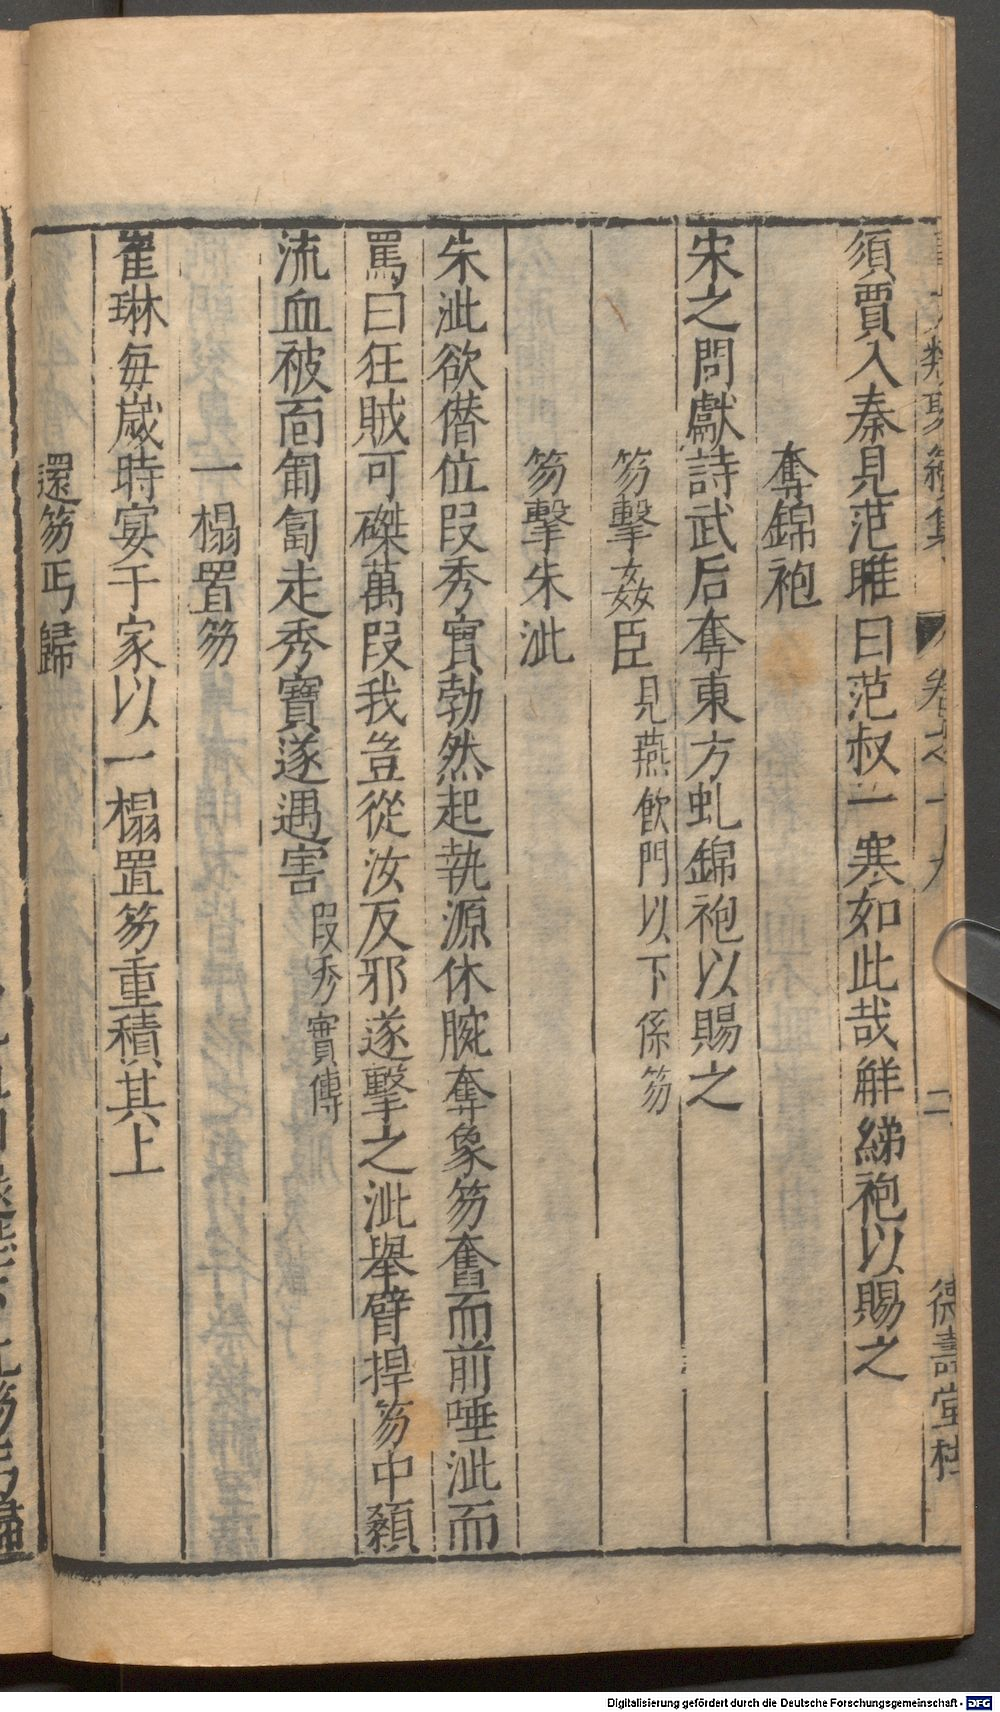 須賈入秦見范睢曰范叔一寒如此哉觧綈袍以賜之
奪錦袍
宋之問獻詩武后奪東方虬錦袍以賜之
笏擊姦臣見燕飲門以下係笏
笏擊朱泚
朱泚欲僭位段秀實勃然起執源休腕奪象笏奮而前唾泚而
罵曰狂賊可磔萬段我豈從汝反邪遂擊之泚舉臂捍笏中顙
流血被面匍匐走秀實遂遇害段秀實傳
一榻置笏
崔琳每歲時宴于家以一榻置笏重積其上
還笏丐歸
類聚續集
卷之十九
二
德壽堂梓
Digitalisierung gefördert durch die Deutsche Forschungsgemeinschaft - DFG